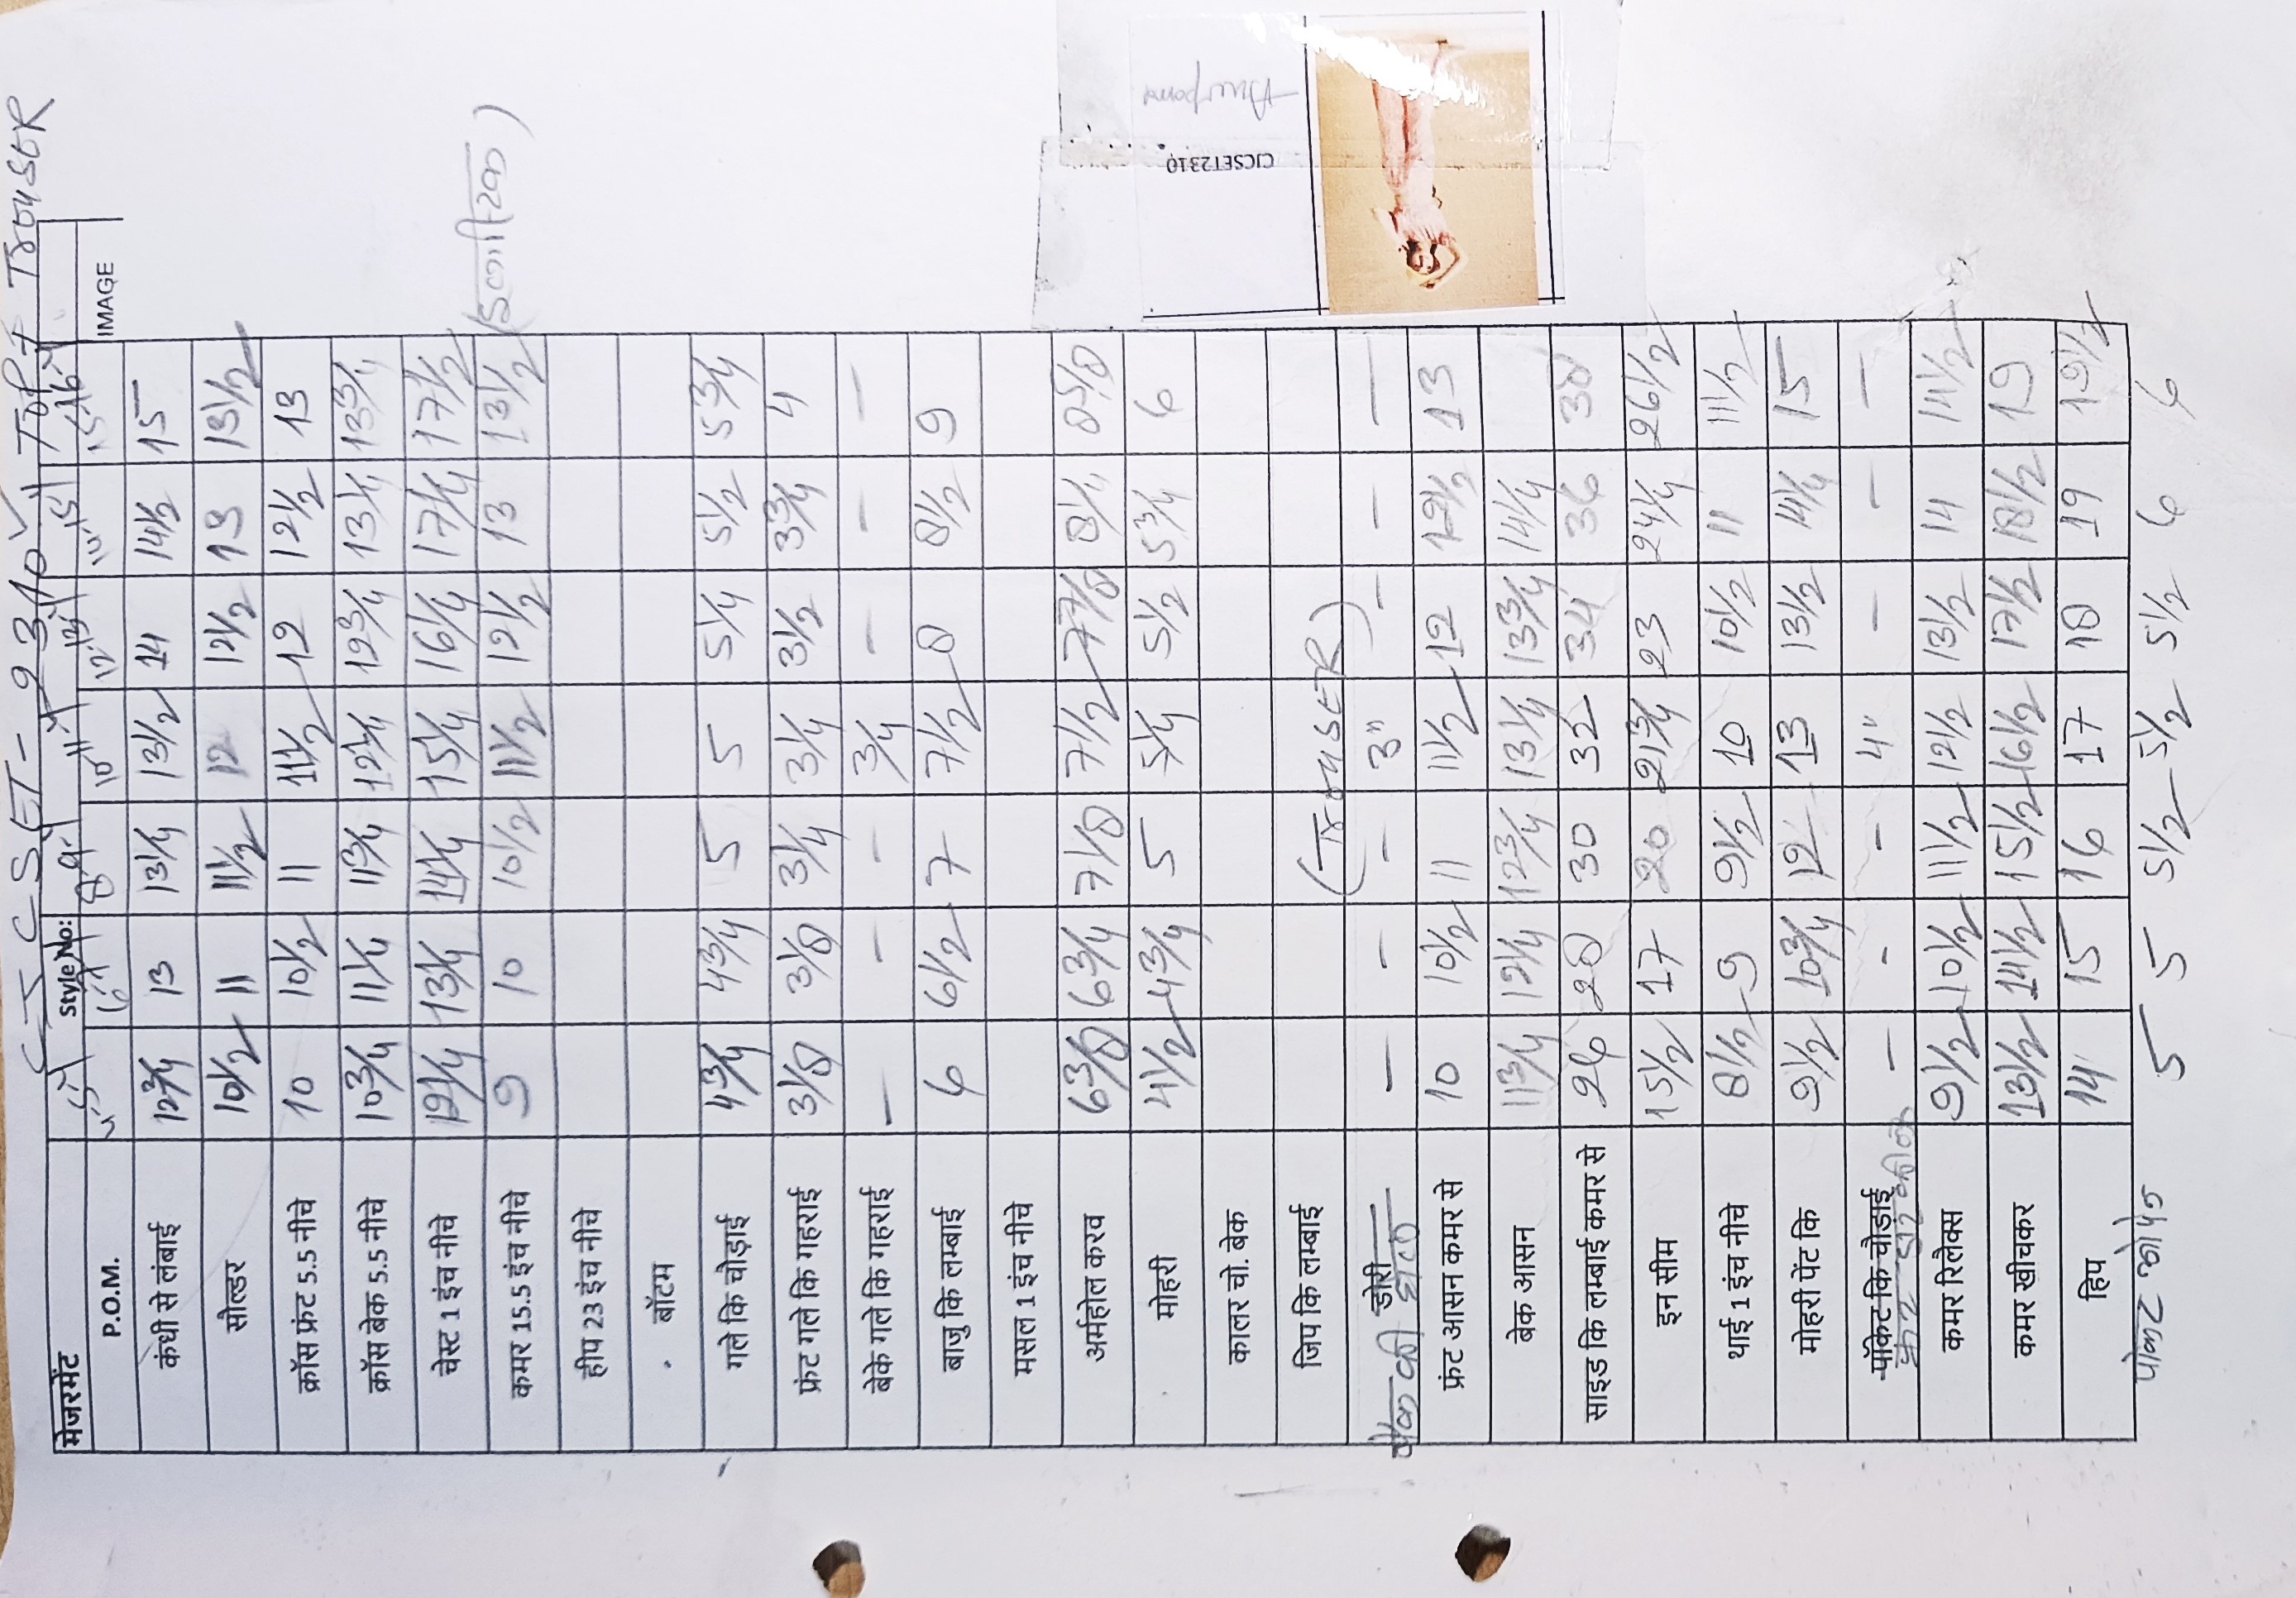 CJCSET-2310 Top + Trouser
मेजरमेंट Style No: IMAGE
P.O.M. 8 10 11 12 13 14 15 15-16
कंधी से लंबाई 12 3/4 13 13 1/4 13 1/2 14 14 1/2 15
सौल्डर 10 1/2 11 11 1/2 12 12 1/2 13 13 1/2
क्रॉस फ्रंट 5.5 नीचे 10 10 1/2 11 11 1/2 12 12 1/2 13
क्रॉस बेक 5.5 नीचे 10 3/4 11 1/4 11 3/4 12 1/4 12 3/4 13 1/4 13 3/4
चेस्ट 1 इंच नीचे 12 1/4 13 1/4 14 1/4 15 1/4 16 1/4 17 1/4 17 1/2
कमर 15.5 इंच नीचे 9 10 10 1/2 11 1/2 12 1/2 13 13 1/2 (इलास्टिक)
हीप 23 इंच नीचे
बॉटम
गले कि चौड़ाई 4 3/4 4 3/4 5 5 5 1/4 5 1/2 5 3/4
फ्रंट गले कि गहराई 3 1/8 3 1/8 3 1/4 3 1/4 3 1/2 3 3/4 4
बेके गले कि गहराई — — — 3/4 — — —
बाजु कि लम्बाई 6 6 1/2 7 7 1/2 8 8 1/2 9
मसल 1 इंच नीचे
अर्महोल करव 6 3/8 6 3/4 7 1/8 7 1/2 7 7/8 8 1/4 8 5/8
मोहरी 4 1/2 4 3/4 5 5 1/4 5 1/2 5 3/4 6
कालर चो. बेक
जिप कि लम्बाई (Trouser)
डोरी — — — 3" — — —
फ्रंट आसन कमर से 10 10 1/2 11 11 1/2 12 12 1/2 13
बेक आसन 11 3/4 12 1/4 12 3/4 13 1/4 13 3/4 14 1/4
साइड कि लम्बाई कमर से 26 28 30 32 34 36 38
इन सीम 15 1/2 17 20 21 3/4 23 24 1/4 26 1/2
थाई 1 इंच नीचे 8 1/2 9 9 1/2 10 10 1/2 11 11 1/2
मोहरी पेंट कि 9 1/2 10 3/4 12 13 13 1/2 14 1/4 15
पॉकेट कि चौड़ाई — — — 4" — — —
कमर रिलेक्स 9 1/2 10 1/2 11 1/2 12 1/2 13 1/2 14 14 1/2
कमर खीचकर 13 1/2 14 1/2 15 1/2 16 1/2 17 1/2 18 1/2 19
हिप 14 15 16 17 18 19 19 1/2
पोकट 5 5 5 1/2 5 1/2 5 1/2 6 6
CJCSET2310